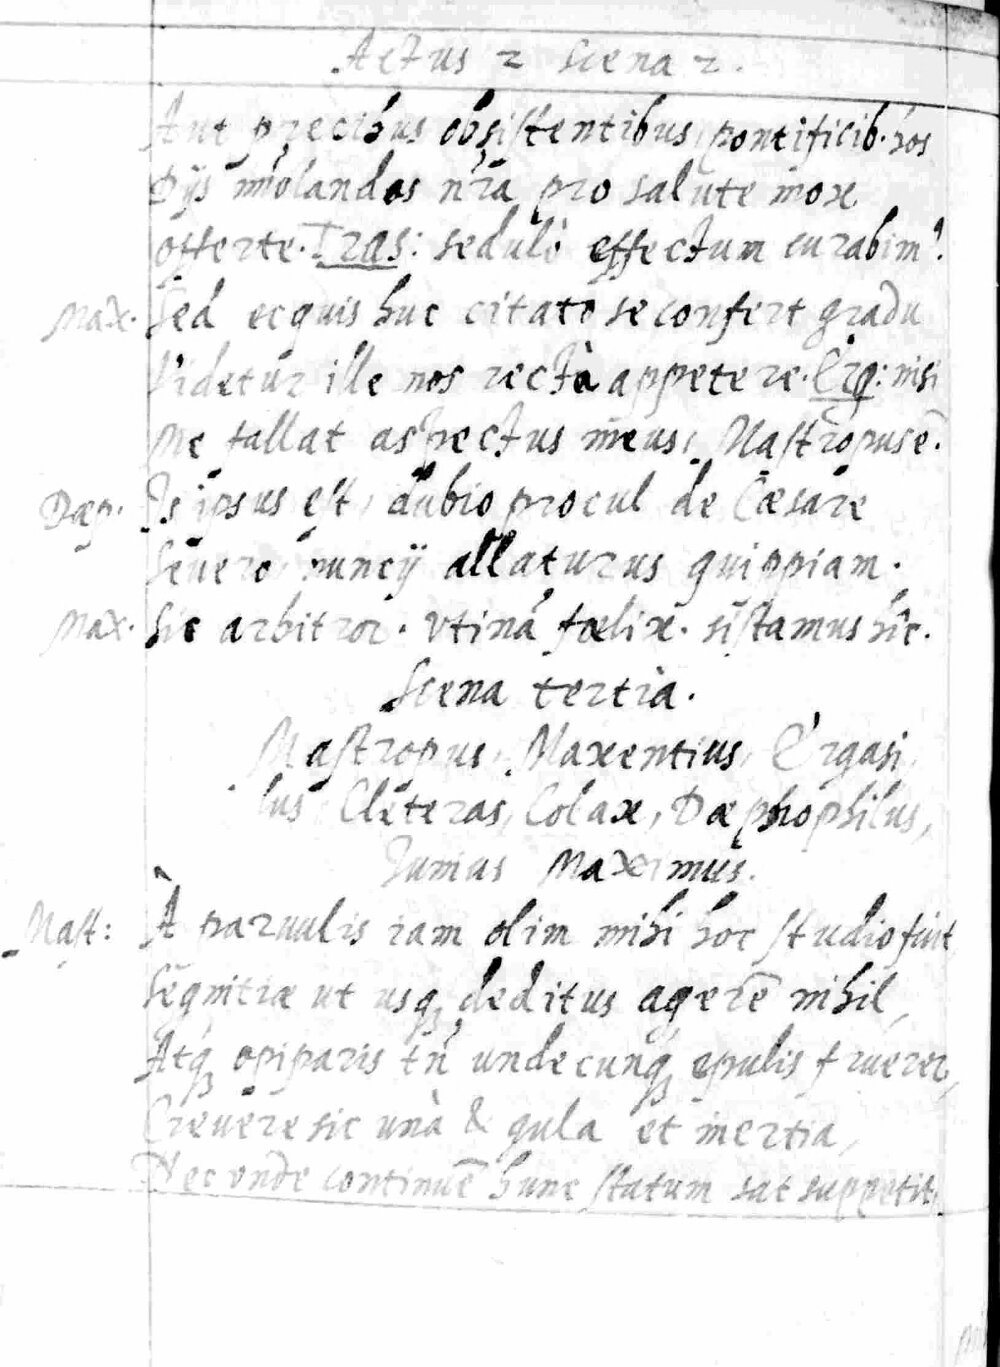 Actus 2 Scena 2.
Aut precibus obsistentibus pontificib. hos
Dijs im̃olandos nr̃a pro salute mox
offerte. Tras: sedulò effectum curabim9.
Max. Sed ecquis huc citato se confert gradu
Videtur ille nos rectà appetere. Erg: nisi
Me fallat aspectus meus, Mastropus ē.
Dæp. Is ipsus est, dubio procul de Cæsare
Seuero nuncij allaturus quippiam.
Max. Sic arbitror. Vtinā fœlix. sistamus hîc.
Scena tertia.
Mastropus, Maxentius, Ergasi
lus Cleteras, Colax, Dæphophilus,
Junius Maximus.
Mast: À paruulis iam olim mihi hoc studio fuit
Segnitiæ ut usq3 deditus agerē nihil,
Atq3 opiparis tñ undecunq3 epulis fruerer,
Creuere sic unà & gula et inertia,
Nec unde continuē hunc statum sat suppetit,